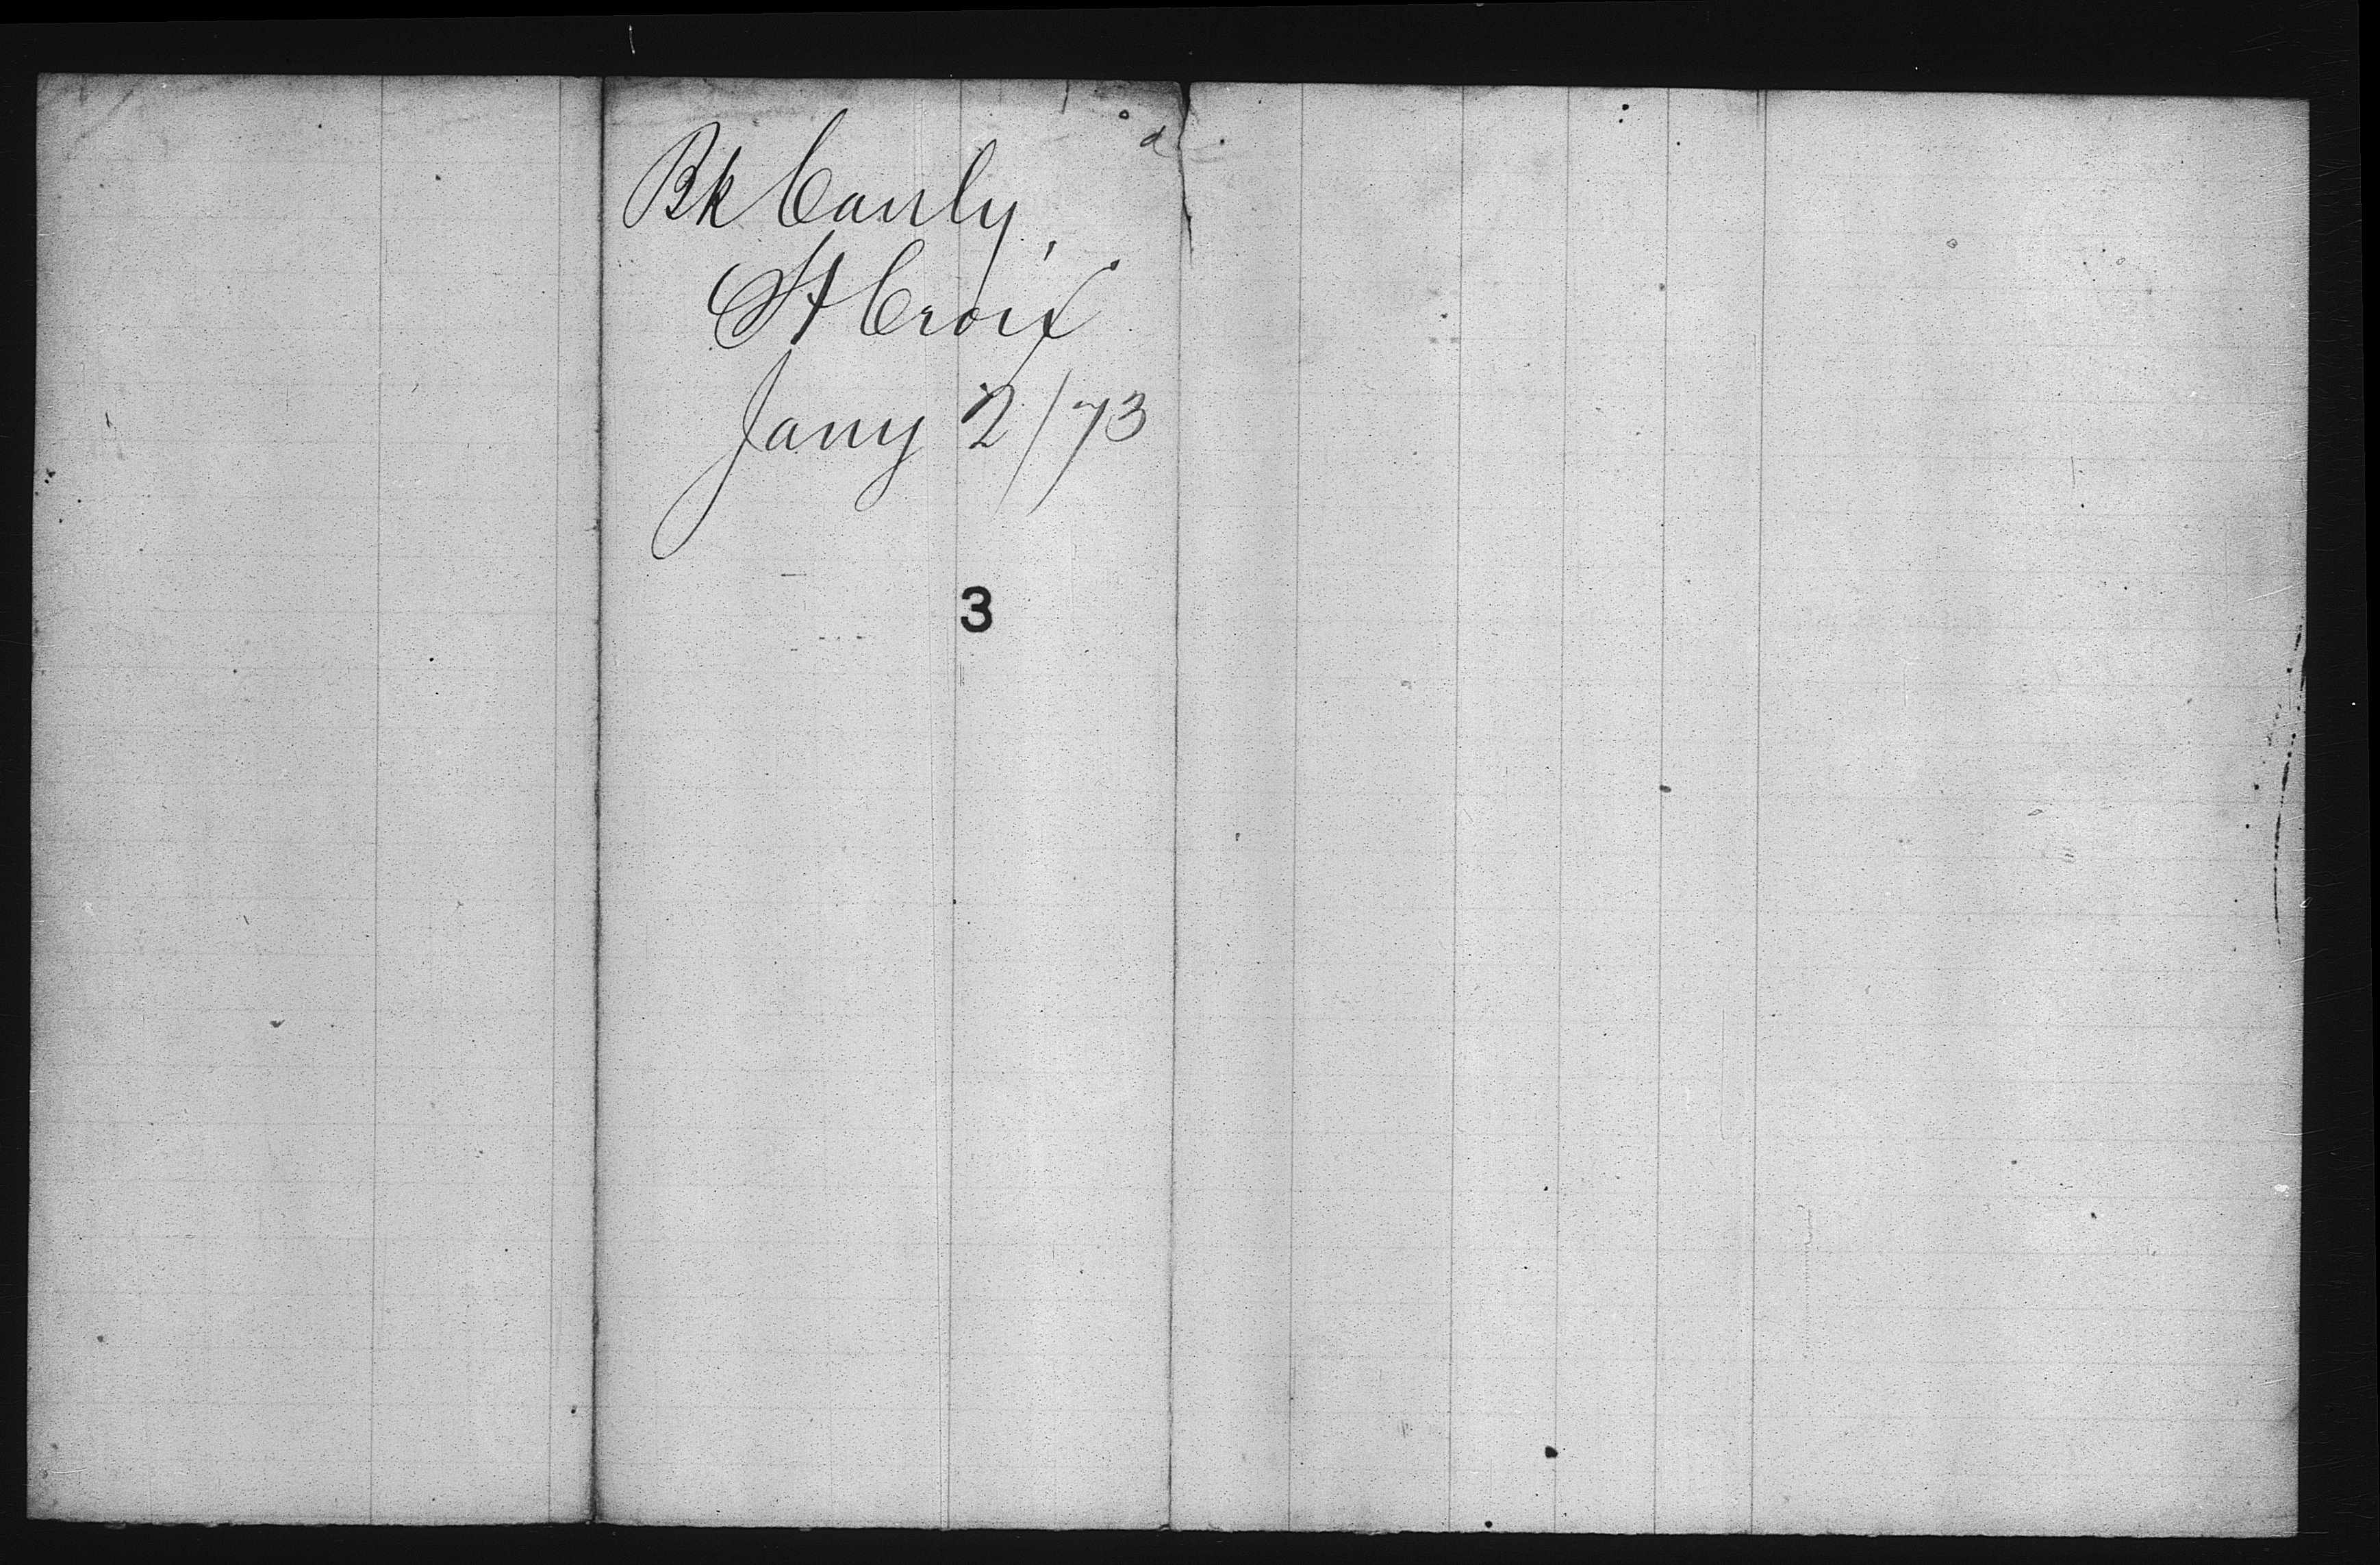 Bk Canly,
St Croix
Jany 2/73
3